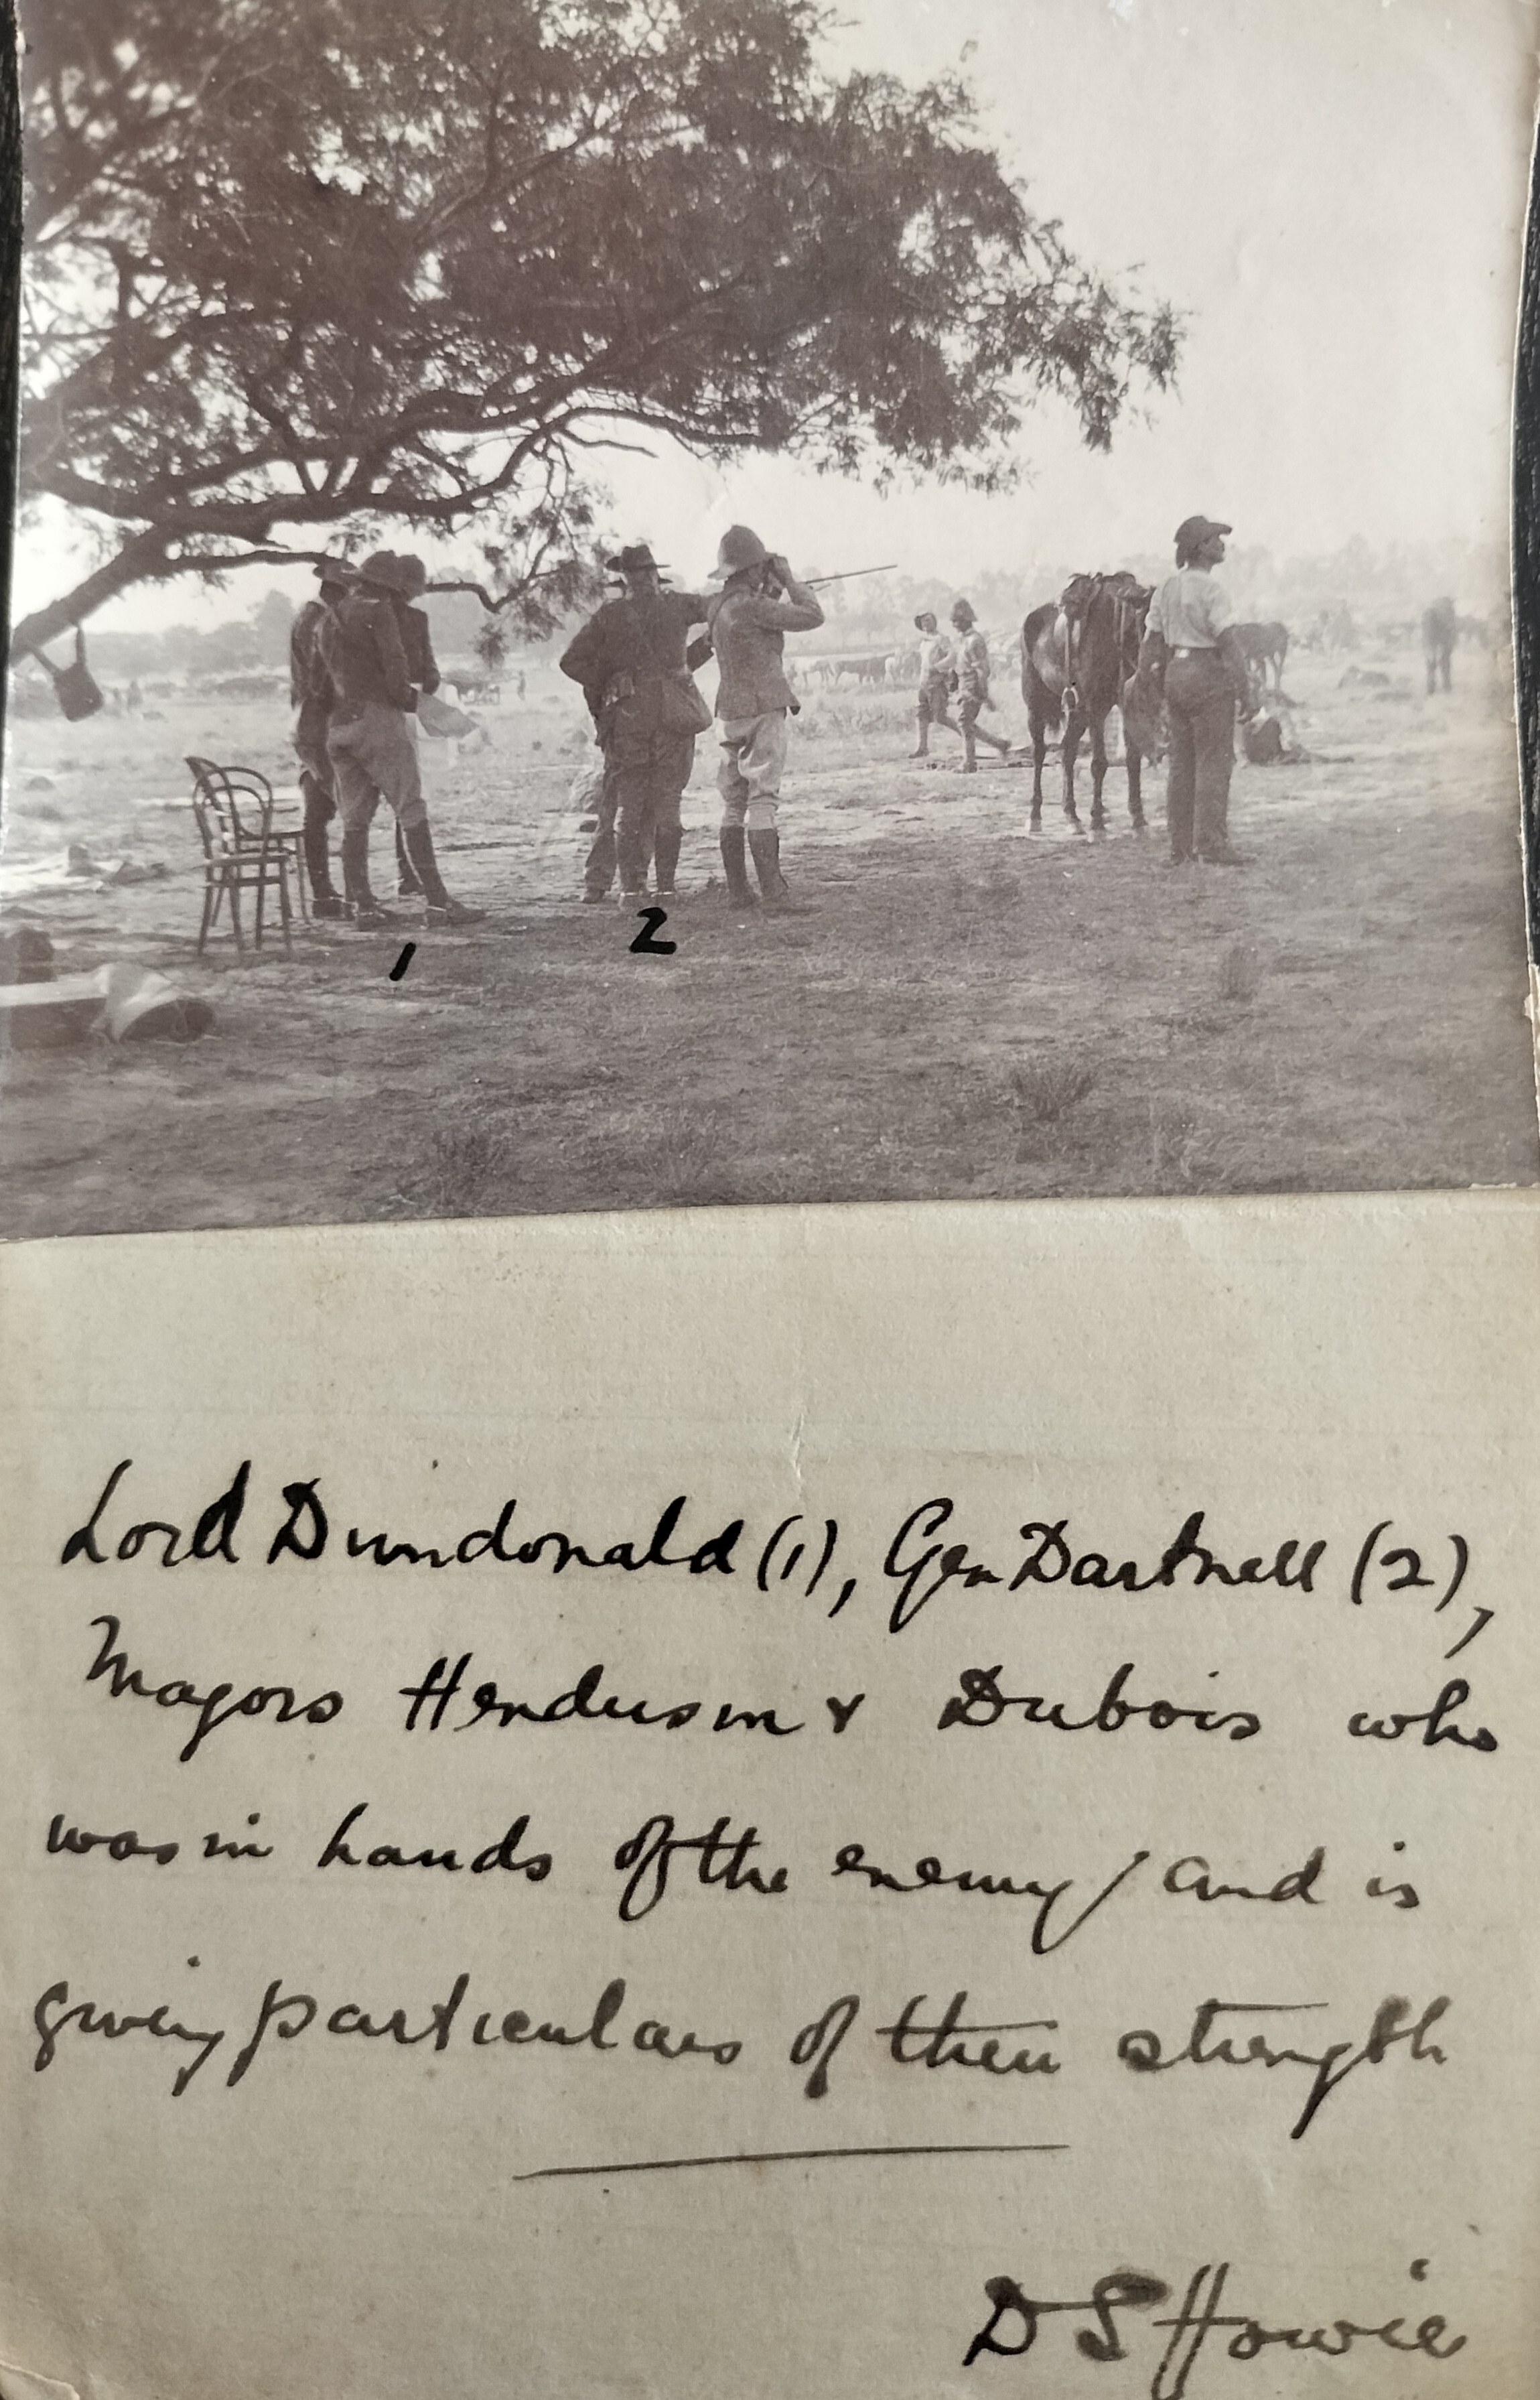 1
2
Lord Dundonald (1), Gen Dartnell (2),
Majors Henderson & Dubois who
was in hands of the enemy / and is
giving particulars of their strength
D S Howie